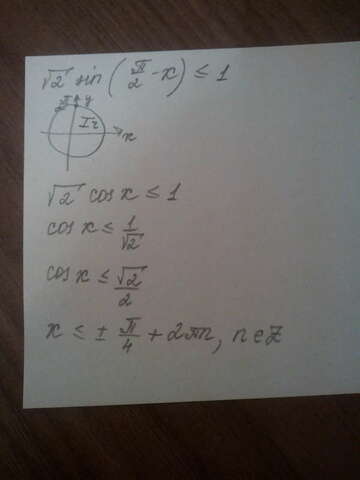 √2 sin (π/2 - x) ≤ 1
π/2 y
I ч
x
√2 cos x ≤ 1
cos x ≤ 1/√2
cos x ≤ √2/2
x ≤ ± π/4 + 2πn, n ∈ Z